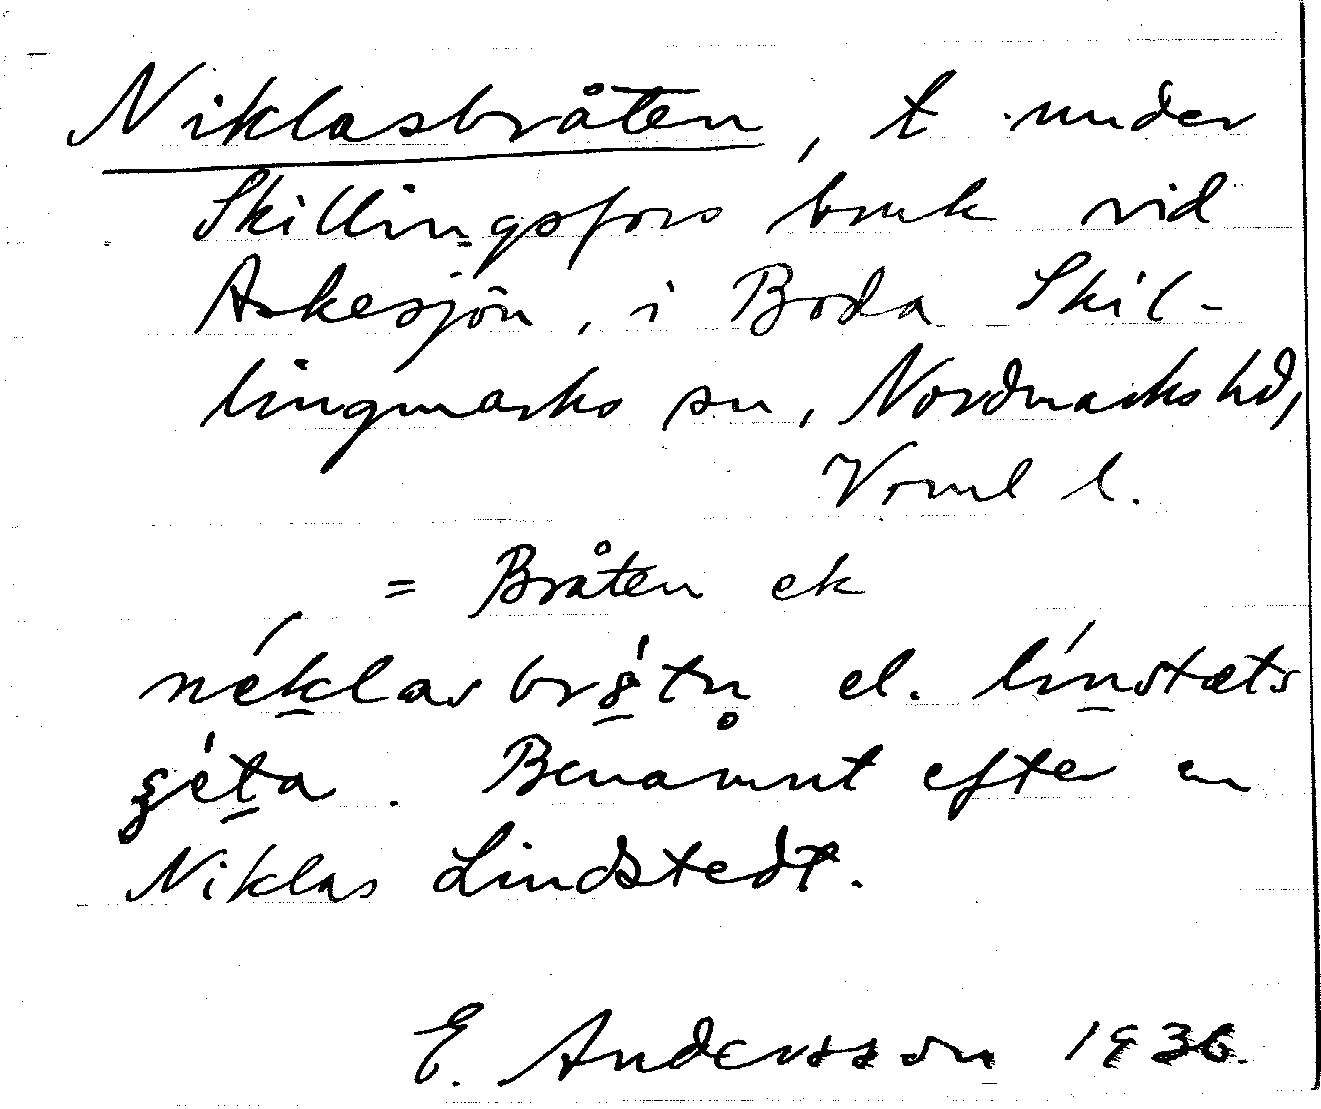 Niklasbråten, t under
Skillingsfors bruk vid
Askesjön, i Boda Skil-
lingmarks sn, Nordmarks hd,
Vrml l.
= Bråten ek
néklas brǻtn̥ el. línstæts
géta. Benämnt efter en
Niklas Lindstedt.
E. Andersson 1936.